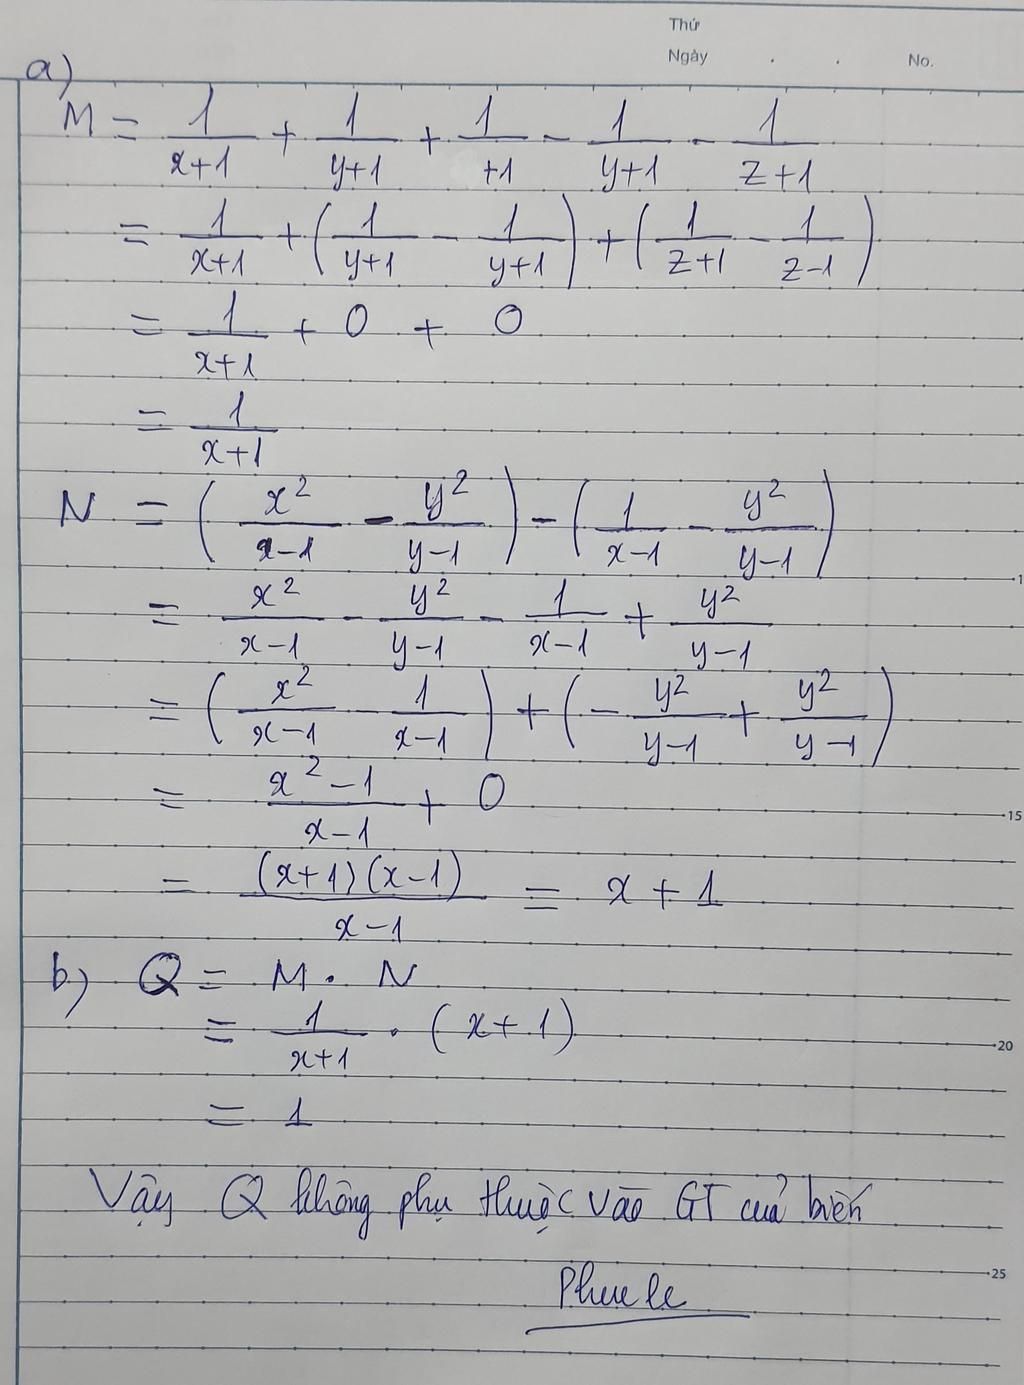 Thứ
Ngày . . No.
a)
M = 1/(x+1) + 1/(y+1) + 1/(+1) - 1/(y+1) - 1/(z+1)
= 1/(x+1) + (1/(y+1) - 1/(y+1)) + (1/(z+1) - 1/(z-1))
= 1/(x+1) + 0 + 0
= 1/(x+1)
N = (x²/(x-1) - y²/(y-1)) - (1/(x-1) - y²/(y-1))
= x²/(x-1) - y²/(y-1) - 1/(x-1) + y²/(y-1)
= (x²/(x-1) - 1/(x-1)) + (- y²/(y-1) + y²/(y-1))
= (x²-1)/(x-1) + 0
15
= (x+1)(x-1)/(x-1) = x + 1
b) Q = M . N
= 1/(x+1) . (x+1)
20
= 1
Vậy Q không phụ thuộc vào GT của biến
25